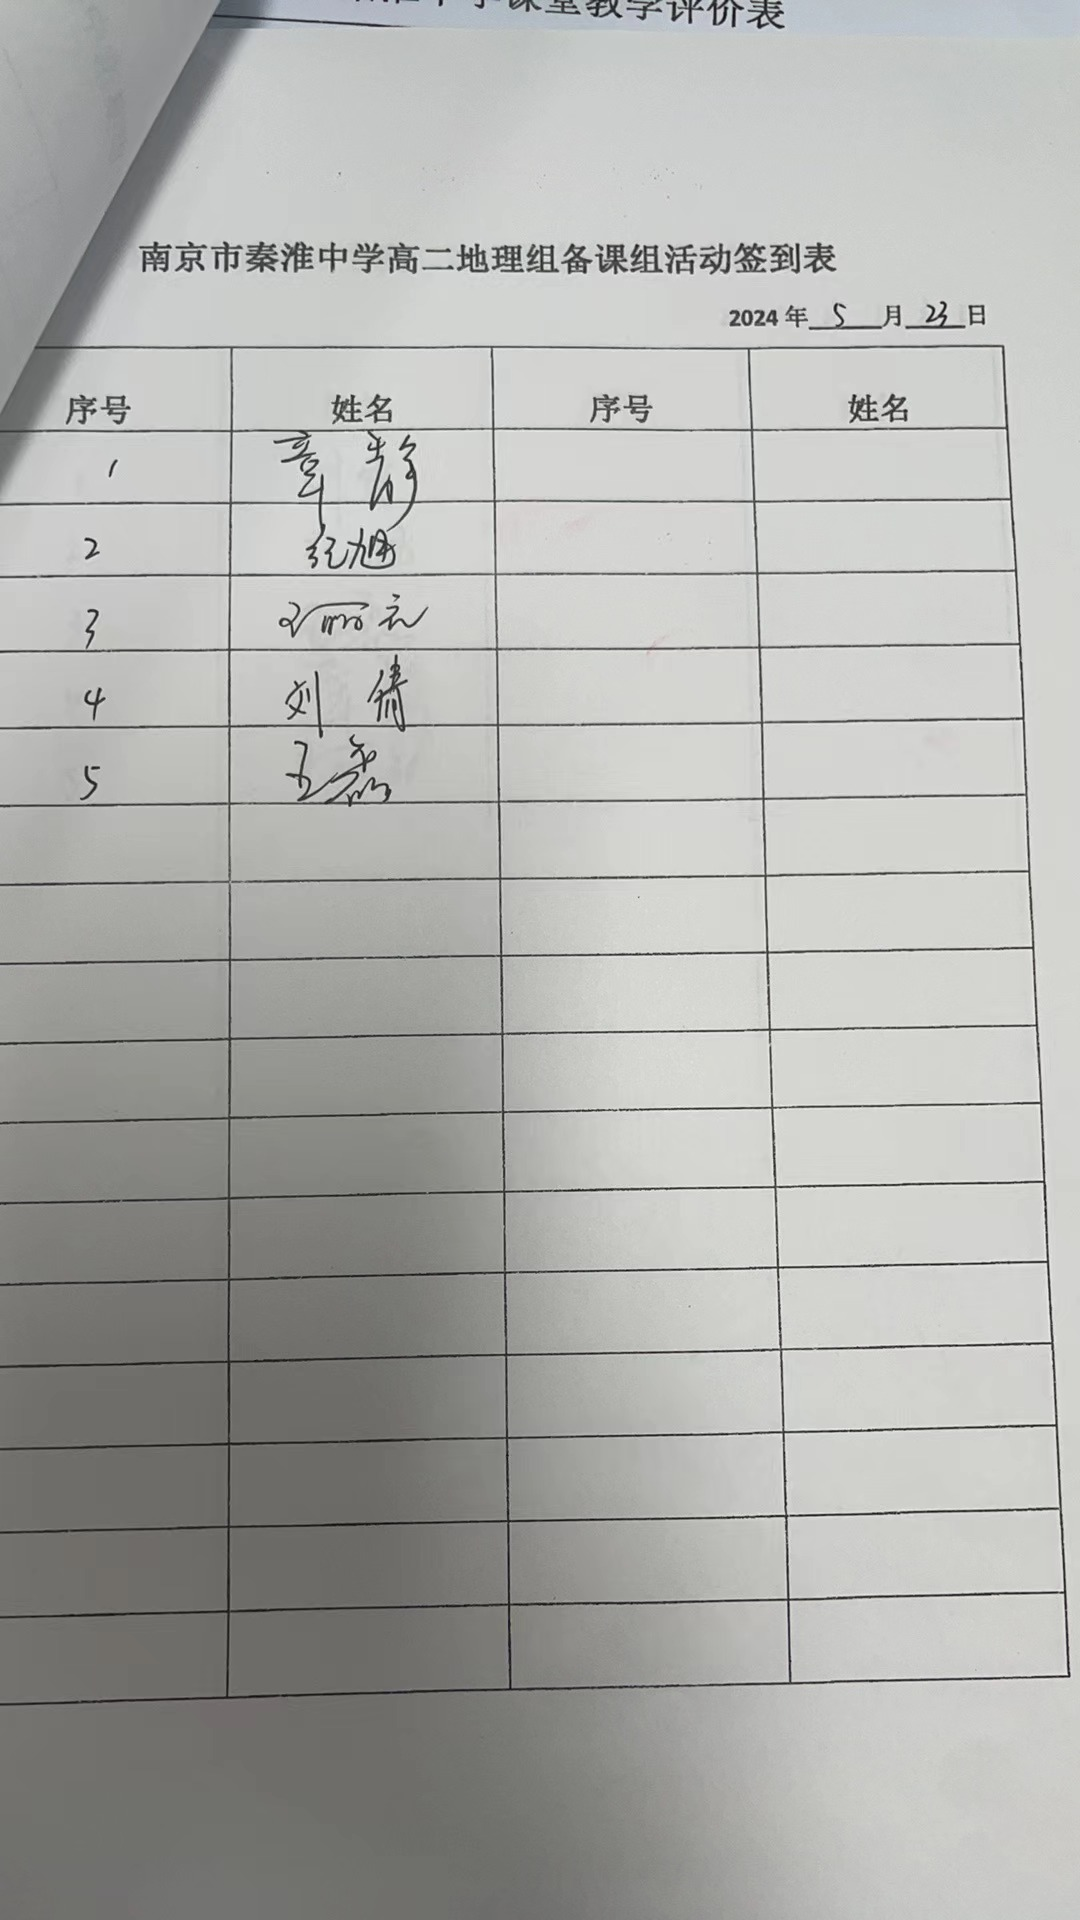 中学课堂教学评价表
南京市秦淮中学高二地理组备课组活动签到表
2024年 5 月 23 日
序号 姓名 序号 姓名
1 章静
2 纪旭
3
4 刘倩
5 王磊